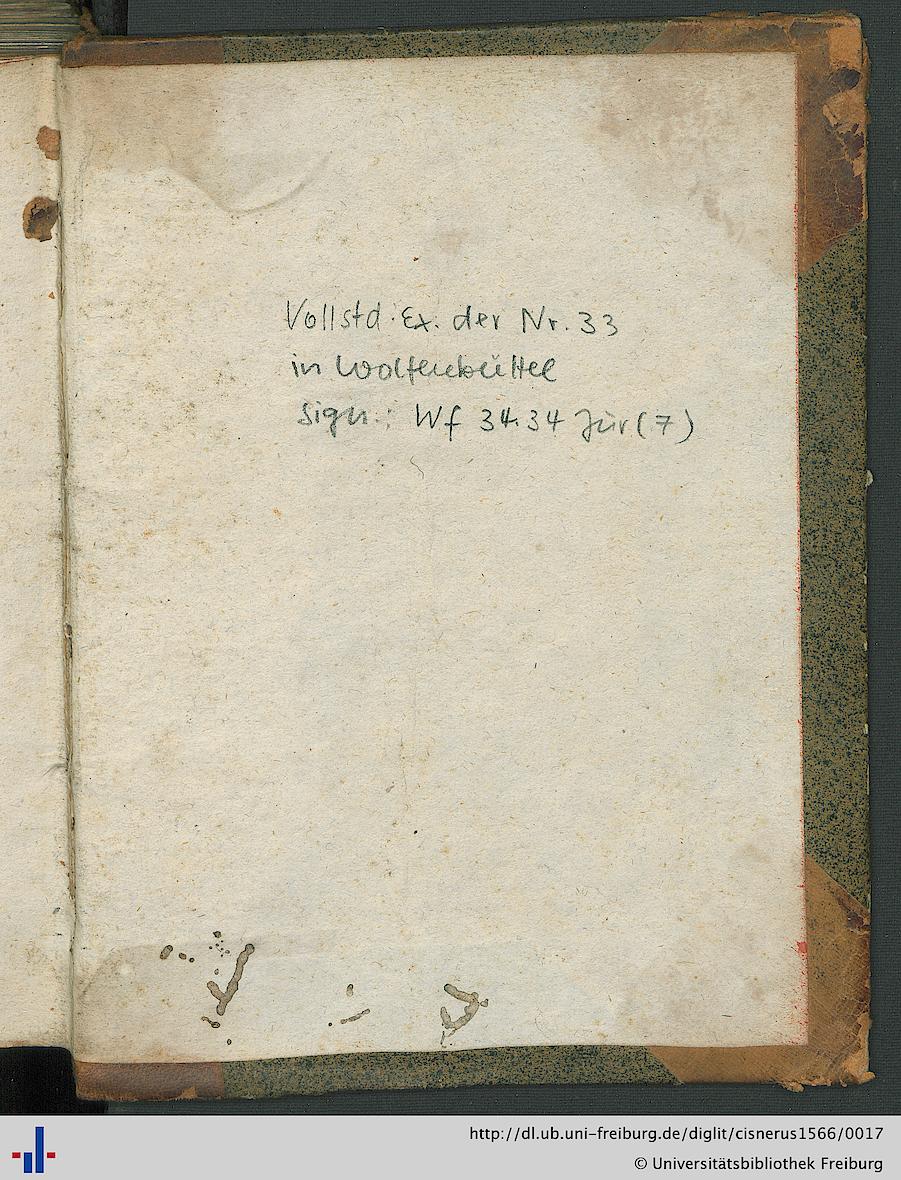 Vollstd. Ex. der Nr. 33
in Wolfenbüttel
Sign.: Wf 34.34 Jur (7)
http://dl.ub.uni-freiburg.de/diglit/cisnerus1566/0017
© Universitätsbibliothek Freiburg